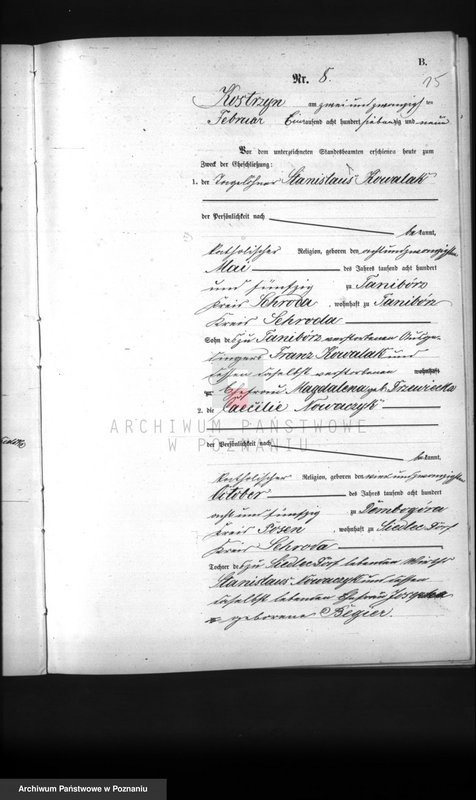 B.
15
Nr. 8.
Kostrzyn am zwei und zwanzigsten
Februar Eintausend acht hundert siebenzig und neun
Vor dem unterzeichneten Standesbeamten erschienen heute zum
Zweck der Eheschließung:
1. der Tagelöhner Stanislaus Kowalak
der Persönlichkeit nach
bekannt,
katholischer Religion, geboren den acht und zwanzigsten
Mai des Jahres tausend acht hundert
und fünfzig zu Tanibórz
Kreis Schroda, wohnhaft zu Tanibórz
Kreis Schroda
Sohn des zu Tanibórz verstorbenen
Franz Kowalak und
dessen daselbst verstorbenen wohnhaft
zu Ehefrau Magdalena geb. Trzewiecka
2. die Caecilie Nowaczyk
ARCHIWUM PAŃSTWOWE
W POZNANIU
der Persönlichkeit nach
bekannt,
katholischer Religion, geboren den ein und zwanzigsten
October des Jahres tausend acht hundert
acht und fünfzig zu Dembogóra
Kreis Posen, wohnhaft zu Siedlec Dorf
Kreis Schroda
Tochter des zu Siedlec Dorf lebenden Wirths
Stanislaus Nowaczyk und dessen
daselbst lebenden Ehefrau Josepha
geborene Begier.
Archiwum Państwowe w Poznaniu